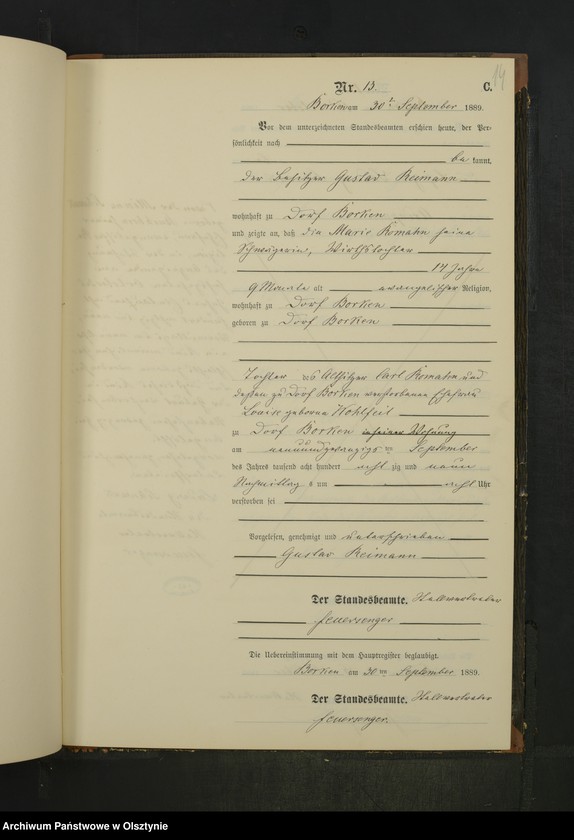 14
Nr. 13. C.
Borken am 30t September 1889.
Vor dem unterzeichneten Standesbeamten erschien heute, der Per-
sönlichkeit nach
be kannt,
der Besitzer Gustav Reimann
wohnhaft zu Dorf Borken
und zeigte an, daß die Marie Romahn seine
Schwägerin, Wirthstochter
14 Jahre
9 Monate alt evangelischer Religion,
wohnhaft zu Dorf Borken
geboren zu Dorf Borken
Tochter des Altsitzer Carl Romahn und
dessen zu Dorf Borken verstorbenen Ehefrau
Louise geborne Wohlfeil
zu Dorf Borken in seiner Wohnung
am neunundzwanzigsten September
des Jahres tausend acht hundert achtzig und neun
Nachmittags um acht Uhr
verstorben sei
Vorgelesen, genehmigt und unterschrieben
Gustav Reimann
Der Standesbeamte. Stellvertreter
Feuersenger
Die Uebereinstimmung mit dem Hauptregister beglaubigt.
Borken am 30ten September 1889.
Der Standesbeamte. Stellvertreter
Feuersenger.
Archiwum Państwowe w Olsztynie